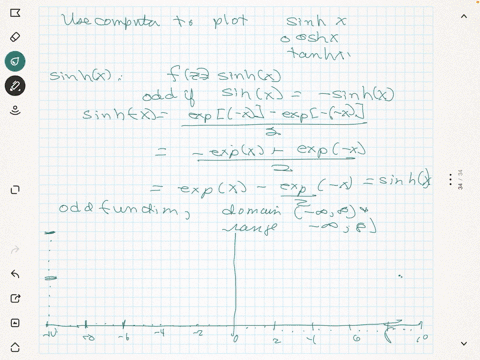 Use computer to plot sinh x
coshx
tanhx
sinh(x): f(z) sinh(x)
odd if sin(x) = -sinh(x)
sinh(-x) = exp[(-x)] - exp[-(-x)]
2
= -exp(x) + exp(-x)
2
= exp(x) - exp(-x) = sinh(x)
2
odd function, domain (-∞, ∞)
range -∞, ∞]
-10 -8 -6 -4 -2 0 2 4 6 8 10
34 / 34